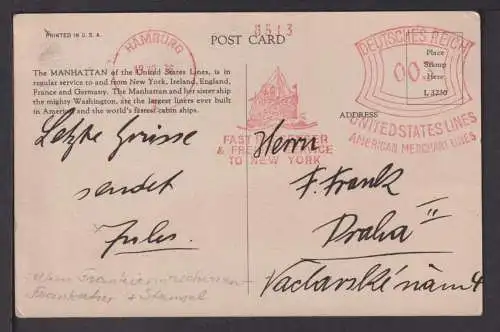 PRINTED IN U.S.A.
HAMBURG
8513
POST CARD
The MANHATTAN of the United States Lines, is in
regular service to and from New York, Ireland, England,
France and Germany. The Manhattan and her sister ship
the mighty Washington, are the largest liners ever built
in America and the world's fastest cabin ships.
DEUTSCHES REICH
Place
Stamp
Here
L 3230
ADDRESS
UNITED STATES LINES
AMERICAN MERCHANT LINES
FAST PASSENGER
& FREIGHT SERVICE
TO NEW YORK
Letzte Grüsse
sendet
Jules
Herrn
F. Frank
Praha II
Václavské nám 4
Frankatur + Stempel